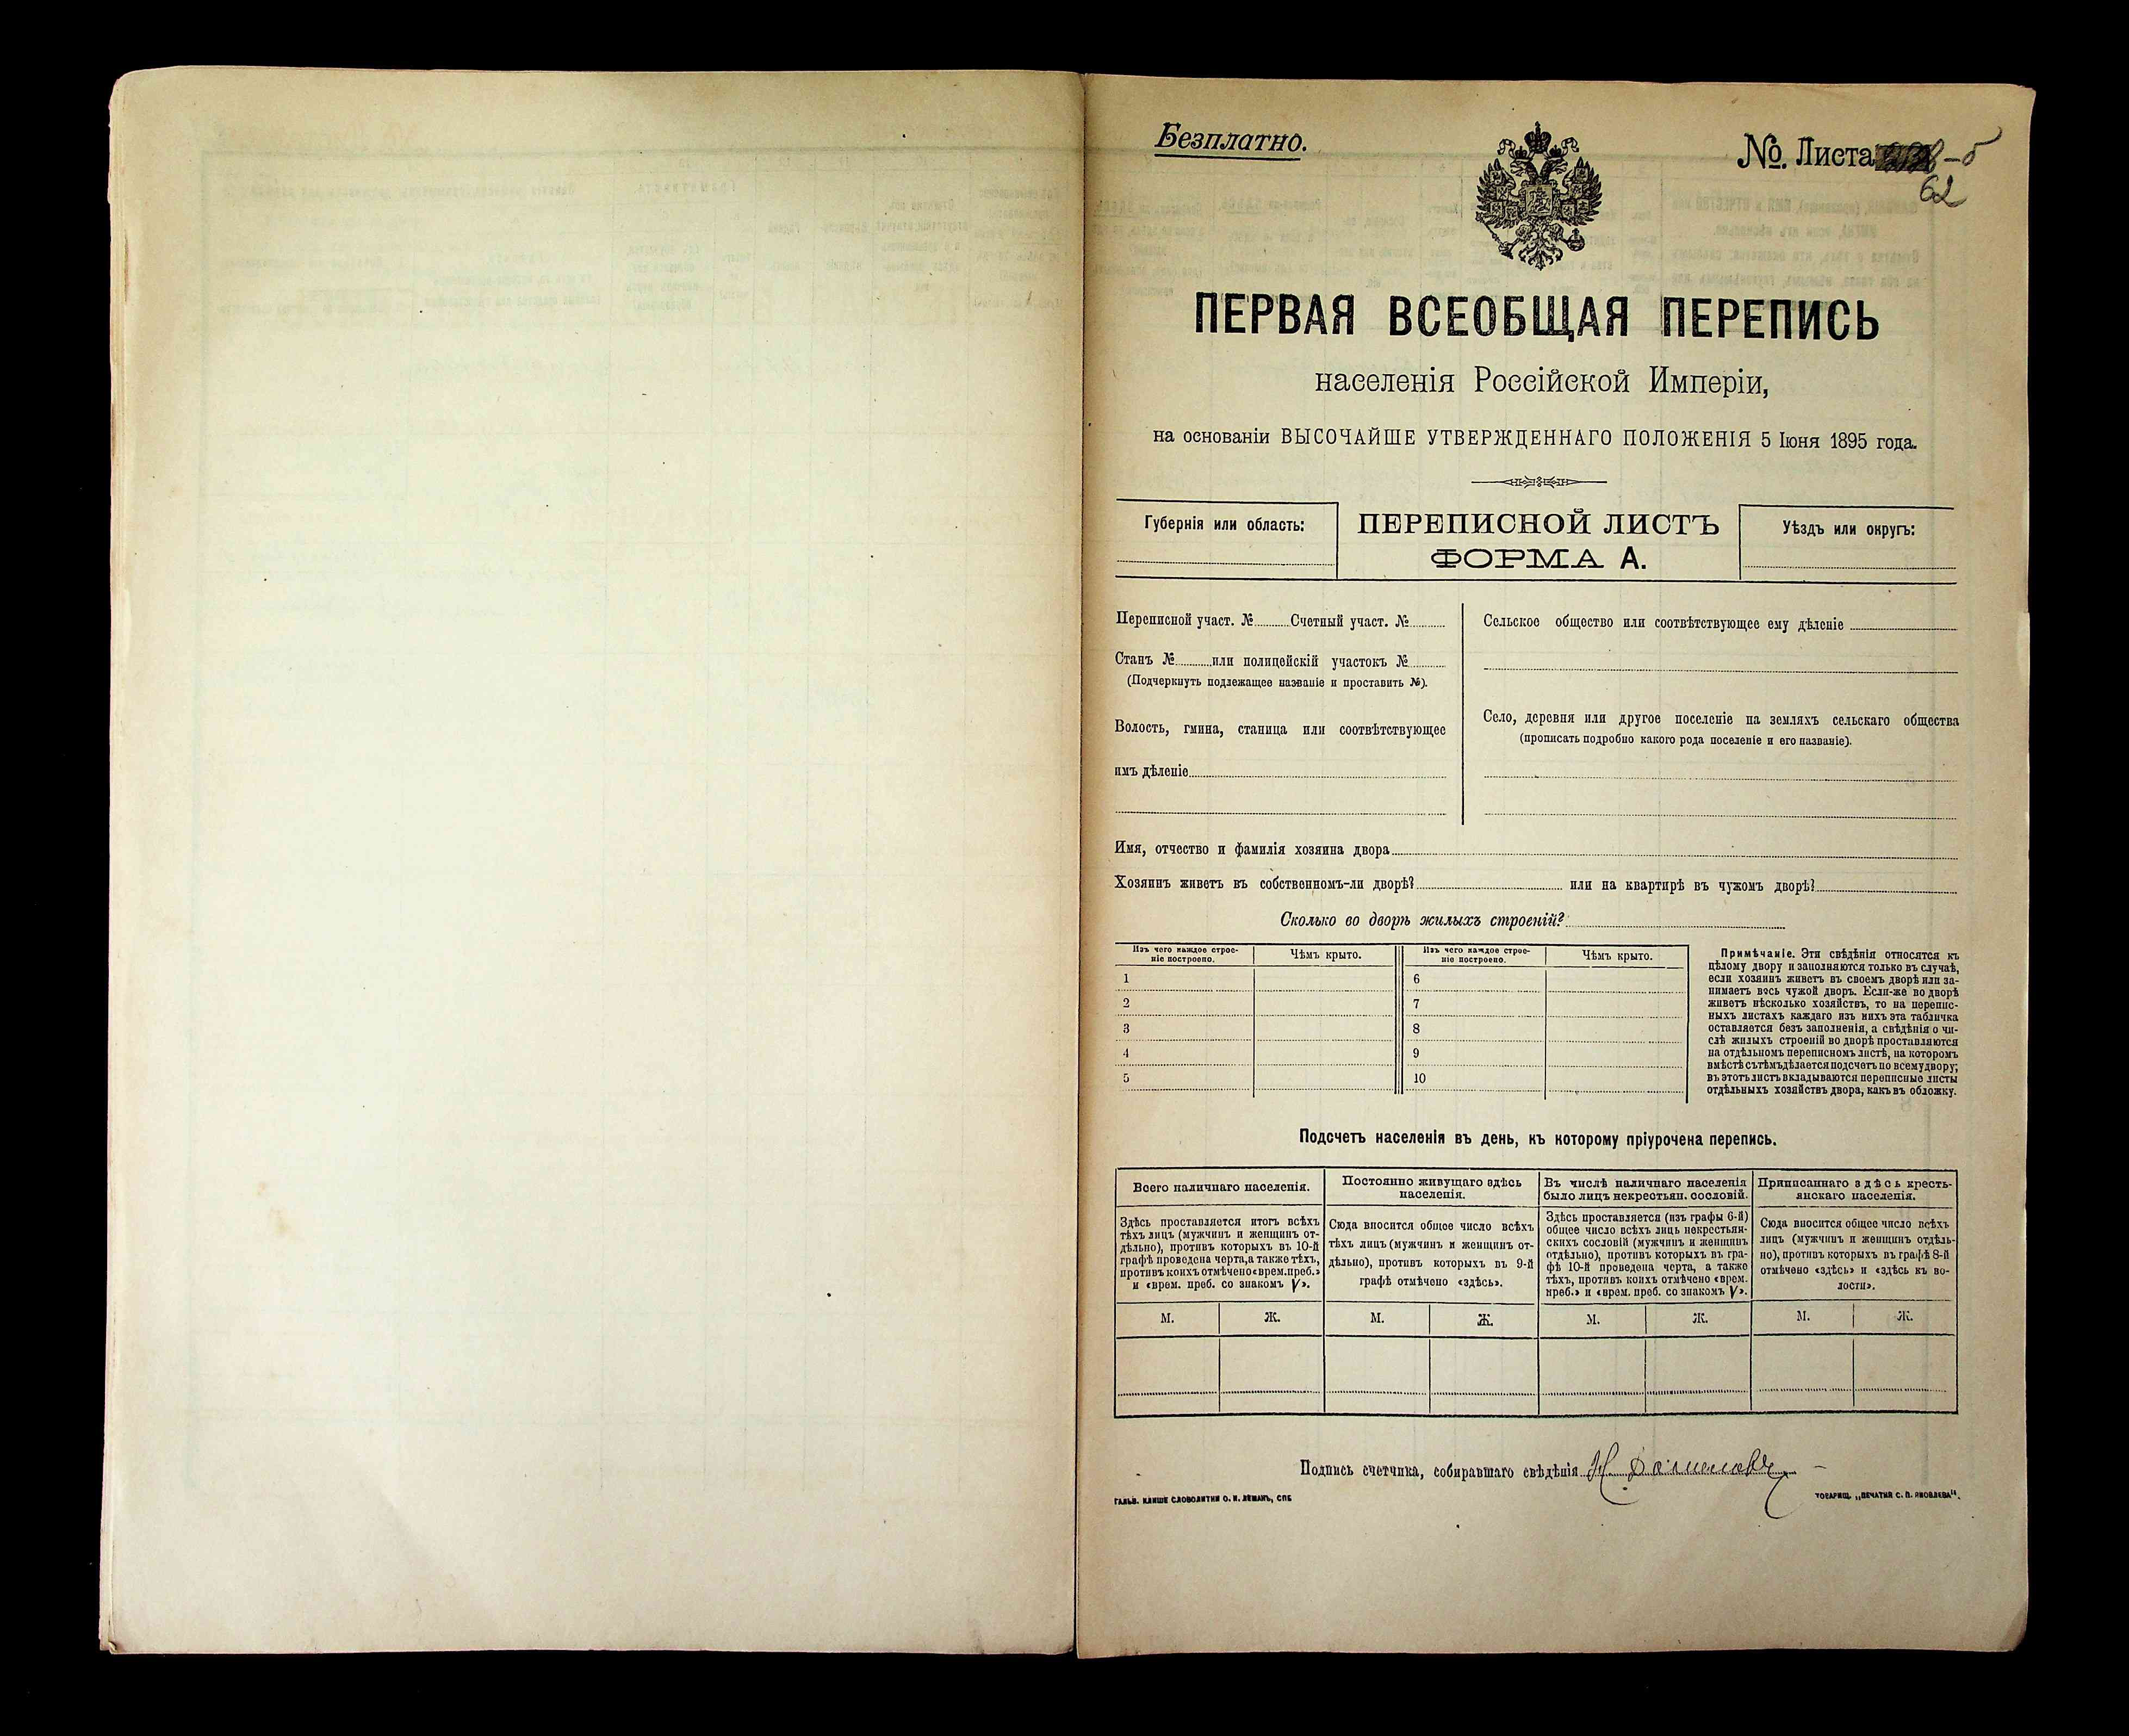 Безплатно.
№. Листа
62
ПЕРВАЯ ВСЕОБЩАЯ ПЕРЕПИСЬ
населенія Россійской Имперіи,
на основаніи ВЫСОЧАЙШЕ УТВЕРЖДЕННАГО ПОЛОЖЕНІЯ 5 Іюня 1895 года.
Губернія или область:
ПЕРЕПИСНОЙ ЛИСТЪ
ФОРМА А.
Уѣздъ или округъ:
Переписной участ. № Счетный участ. №
Станъ № или полицейскій участокъ №
(Подчеркнуть подлежащее названіе и проставить №).
Волость, гмина, станица или соотвѣтствующее
имъ дѣленіе
Сельское общество или соотвѣтствующее ему дѣленіе
Село, деревня или другое поселеніе на земляхъ сельскаго общества
(прописать подробно какого рода поселеніе и его названіе).
Имя, отчество и фамилія хозяина двора
Хозяинъ живетъ въ собственномъ-ли дворѣ? или на квартирѣ въ чужомъ дворѣ?
Сколько во дворѣ жилыхъ строеній?
Изъ чего каждое строе-
ніе построено.
Чѣмъ крыто.
Изъ чего каждое строе-
ніе построено.
Чѣмъ крыто.
1
2
3
4
5
6
7
8
9
10
Примѣчаніе. Эти свѣдѣнія относятся къ
цѣлому двору и заполняются только въ случаѣ,
если хозяинъ живетъ въ своемъ дворѣ или за-
нимаетъ весь чужой дворъ. Если-же во дворѣ
живетъ нѣсколько хозяйствъ, то на перепис-
ныхъ листахъ каждаго изъ нихъ эта табличка
оставляется безъ заполненія, а свѣдѣнія о чи-
слѣ жилыхъ строеній во дворѣ проставляются
на отдѣльномъ переписномъ листѣ, на которомъ
вмѣстѣ съ тѣмъ дѣлается подсчетъ по всему двору;
въ этотъ листъ вкладываются переписные листы
отдѣльныхъ хозяйствъ двора, какъ въ обложку.
Подсчетъ населенія въ день, къ которому пріурочена перепись.
Всего наличнаго населенія.
Здѣсь проставляется итогъ всѣхъ
тѣхъ лицъ (мужчинъ и женщинъ от-
дѣльно), противъ которыхъ въ 10-й
графѣ проведена черта, а также тѣхъ,
противъ коихъ отмѣчено «врем. преб.»
и «врем. преб. со знакомъ V».
Постоянно живущаго здѣсь
населенія.
Сюда вносится общее число всѣхъ
тѣхъ лицъ (мужчинъ и женщинъ от-
дѣльно), противъ которыхъ въ 9-й
графѣ отмѣчено «здѣсь».
Въ числѣ наличнаго населенія
было лицъ некрестьян. сословій.
Здѣсь проставляется (изъ графы 6-й)
общее число всѣхъ лицъ некрестьян-
скихъ сословій (мужчинъ и женщинъ
отдѣльно), противъ которыхъ въ гра-
фѣ 10-й проведена черта, а также
тѣхъ, противъ коихъ отмѣчено «врем.
преб.» и «врем. преб. со знакомъ V».
Приписаннаго здѣсь кресть-
янскаго населенія.
Сюда вносится общее число всѣхъ
лицъ (мужчинъ и женщинъ отдѣль-
но), противъ которыхъ въ графѣ 8-й
отмѣчено «здѣсь» и «здѣсь къ во-
лости».
М. Ж. М. Ж. М. Ж. М. Ж.
Подпись счетчика, собиравшаго свѣдѣнія
ГАЛЬВ. КЛИШЕ СЛОВОЛИТНИ О. И. ЛЕМАНЪ, СПБ
ТОВАРИЩ. „ПЕЧАТНЯ С. П. ЯКОВЛЕВА".